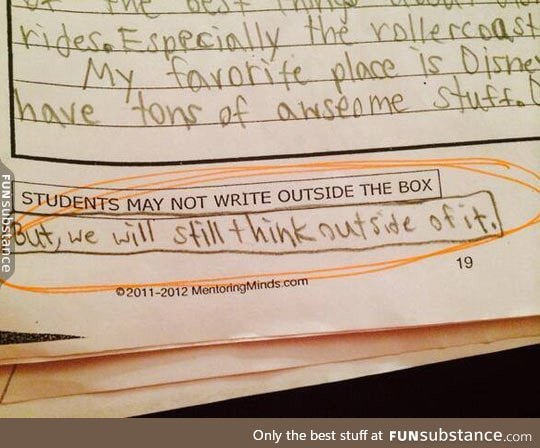 of the best things about
rides. Especially the rollercoast
My favorite place is Disney
have tons of awseome stuff.
STUDENTS MAY NOT WRITE OUTSIDE THE BOX
But, we will still think outside of it.
19
©2011-2012 MentoringMinds.com
FUNsubstance
Only the best stuff at FUNsubstance.com